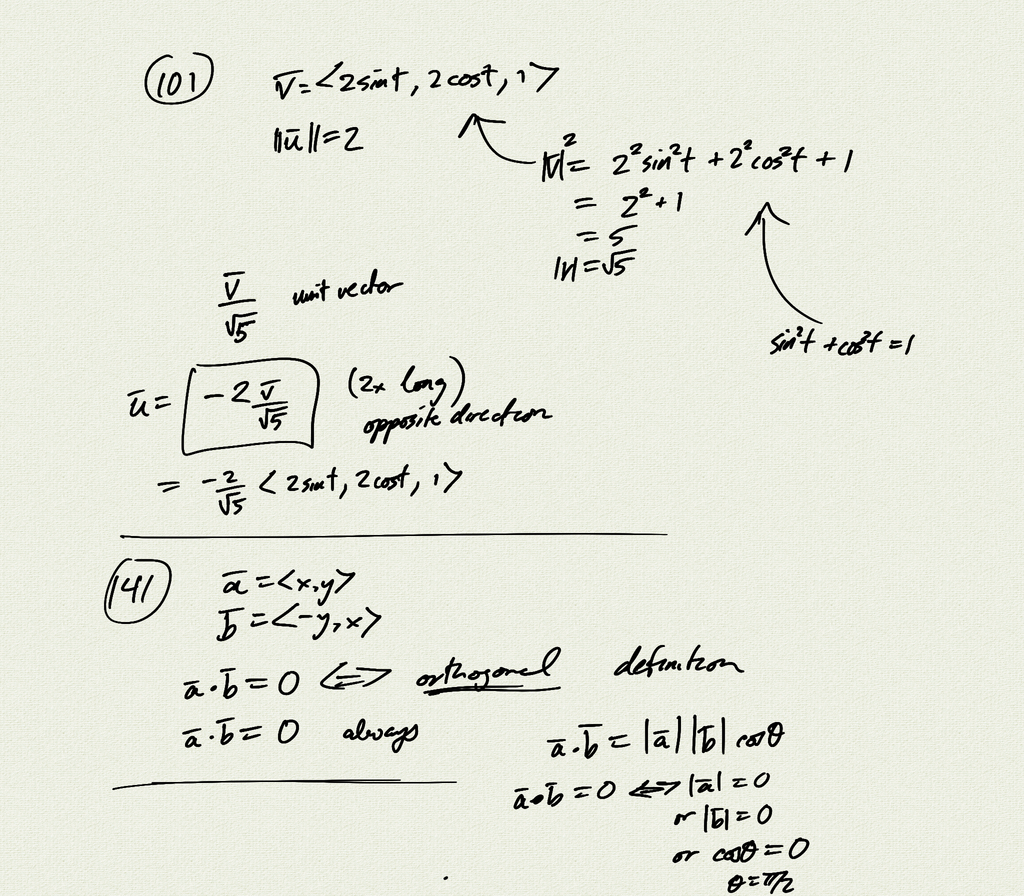 (101) v̅ = <2sint, 2cost, 1>
||u̅|| = 2
|v̅|² = 2²sin²t + 2²cos²t + 1
= 2² + 1
= 5
|v| = √5
v̅/√5 unit vector
sin²t + cos²t = 1
u̅ = -2 v̅/√5 (2x long)
opposite direction
= -2/√5 <2sint, 2cost, 1>
(141) a̅ = <x,y>
b̅ = <-y,x>
a̅·b̅ = 0 <=> orthogonal definition
a̅·b̅ = 0 always
a̅·b̅ = |a̅||b̅| cosθ
a̅·b̅ = 0 <=> |a̅| = 0
or |b̅| = 0
or cosθ = 0
θ = π/2